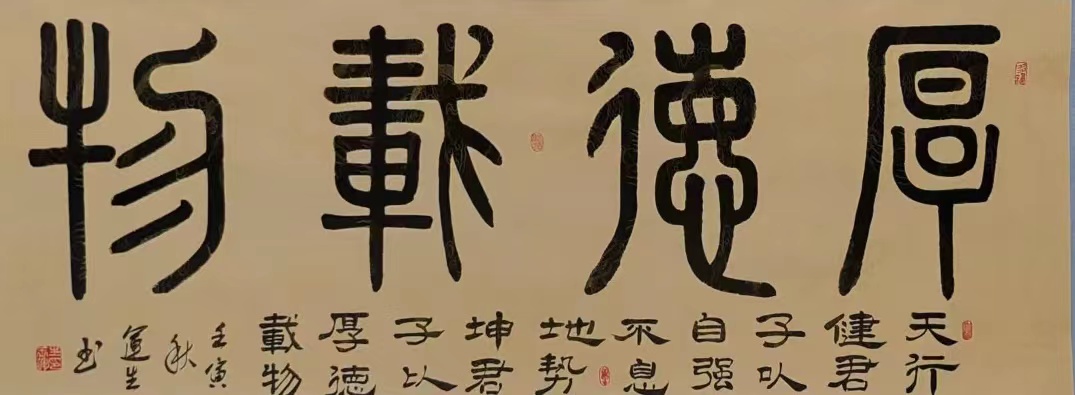 厚德載物
天行
健君
子以
自强
不息
地势
坤君
子以
厚德
載物
壬寅
秋
運生
书